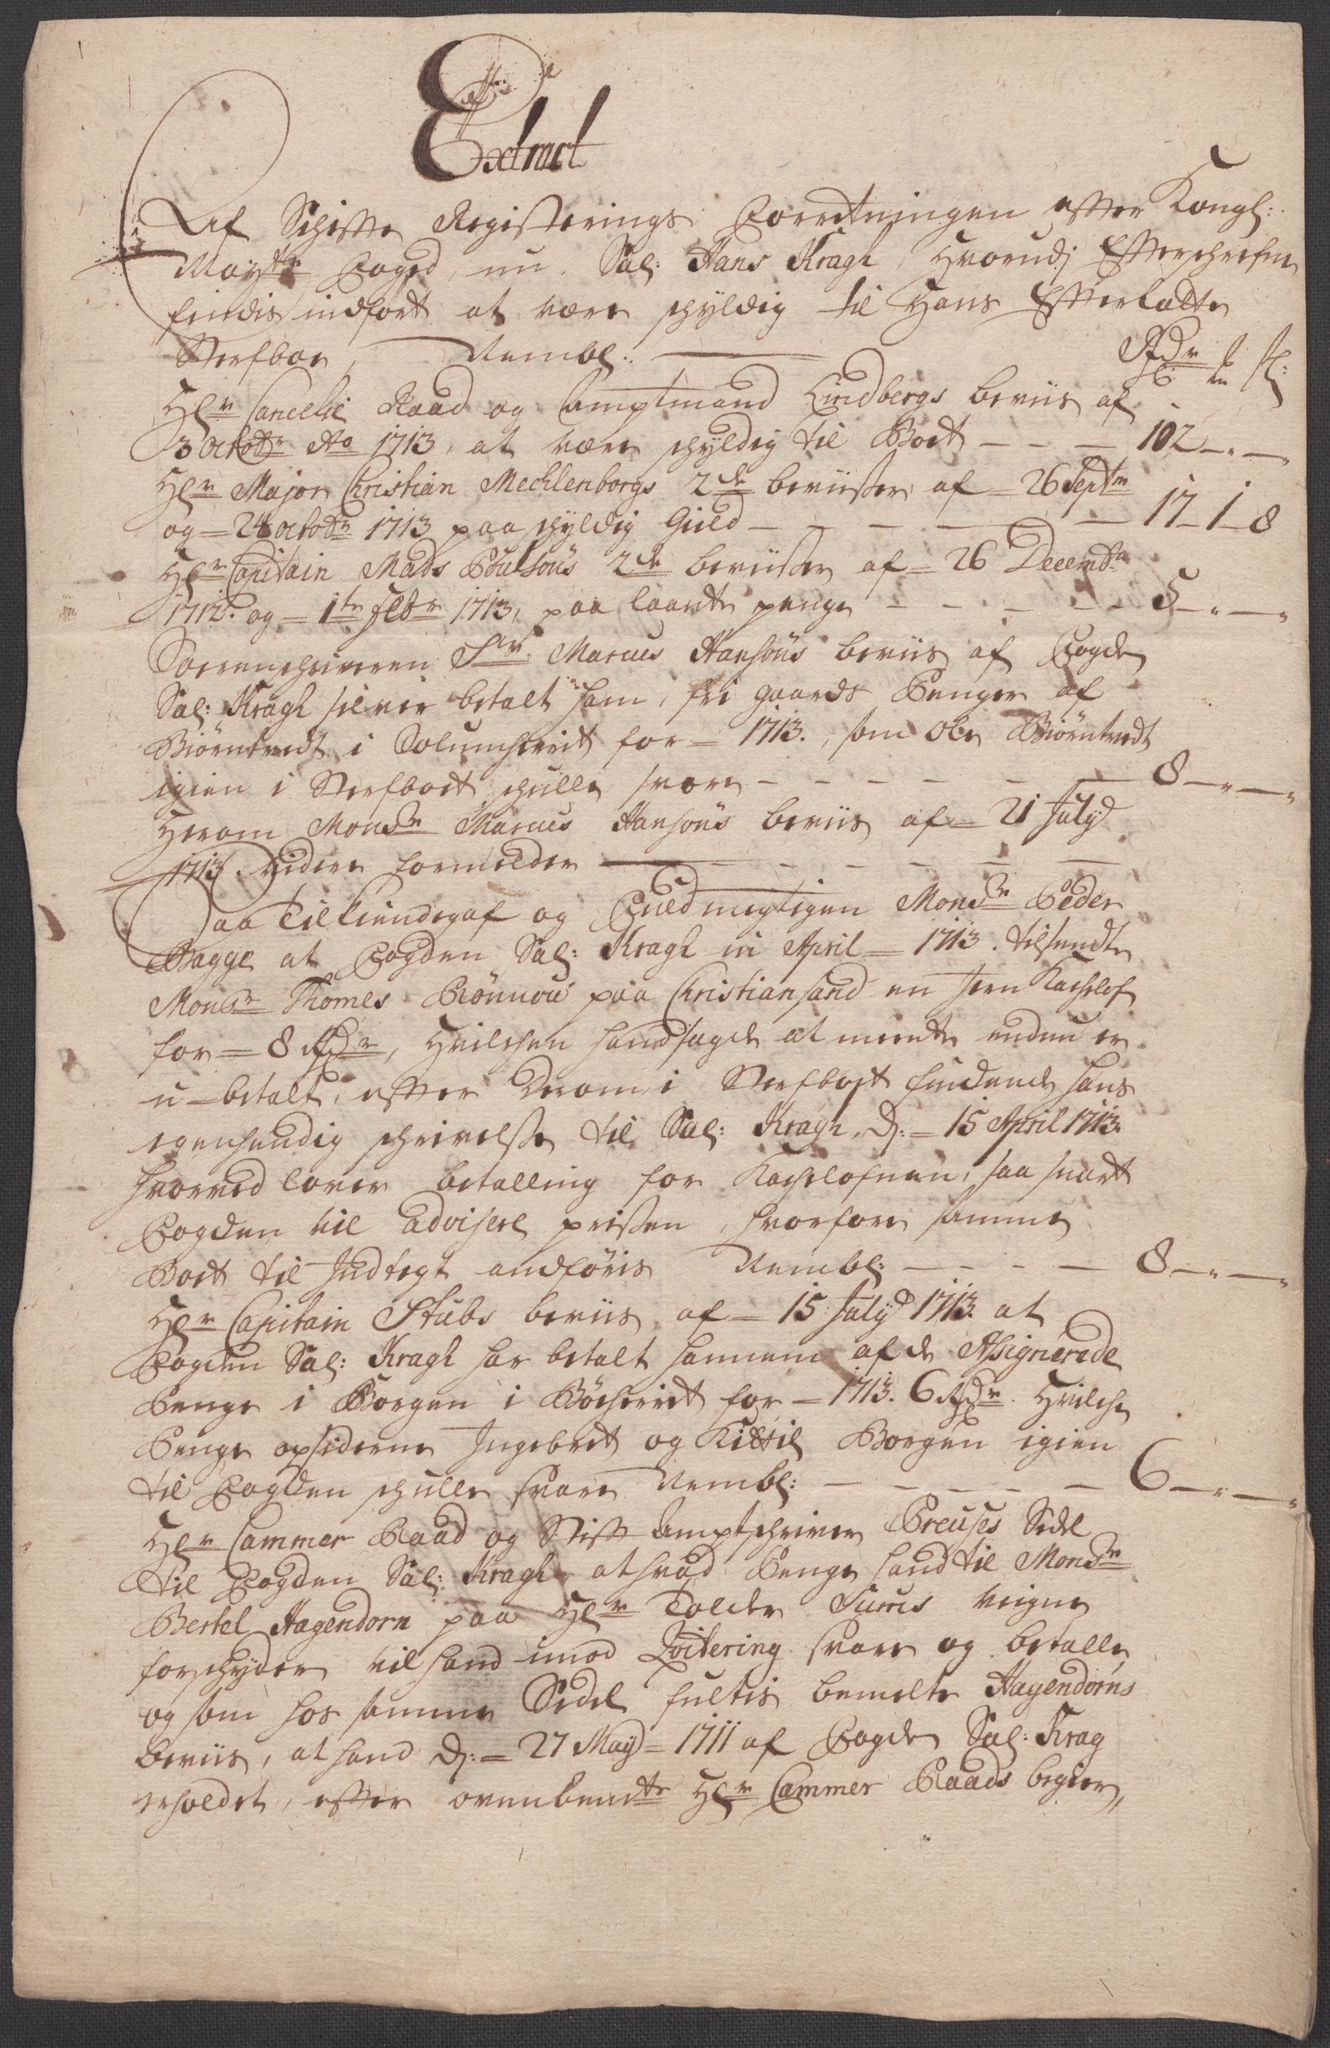 Extract
Af Schifte Registerings Forretningen efter Kongl:
Mayts Foged, nu Sal: Hans Kragh, Hvorudj Efterschrefne
findis indfört at være schyldig til Hans Efterlatte
Sterfboe, Nembl: Rdr ß:
Hr Cancelie Raad og Amptmand Lindbergs beviis af
3 Octobr Ao 1713, at være schyldig til Boet — 102 — " —
Hr Major Christian Mechlenborgs 2de beviisser af 26 Septm
og 24 Octobr 1713 paa schyldig Gield — 17 — 1 — 8
Hr Capitain Mads Poulsöns 2de beviisser af 26 Decembr
1712 og 1te Febr 1713, paa laante penge — 5 — " — "
Sorenschriveren Sr Marcus Hansöns beviis af Fogden
Sal: Kragh self er betalt ham, fri gaards Penger af
Biörntvedt i Solumschrift for 1713, som Ole Biörntvedt
igien i Sterfboet schulle svare — 8 — " — "
Herom Monsr Marcus Hansöns beviis af 21 July
1713 videre formelder
Paa Tilkiendegaf og Fuldmegtigen Monsr Peder
Bagge at Fogden Sal: Kragh in April 1713 tilsendte
Monsr Thomes Rönnou paa Christiansand en Jern Kachelof
for 8 Rdr, Hvilchen hand sagde at meente endnu er
u-betalt, efter derom i Sterfboet findende hans
egenhendig schrivelse til Sal: Kragh, D: 15 April 1713
hvorved lover betalling for Kachelofnen, saa snart
Fogden vil advisere prissen, hvorfore samme
Boet til Indtegt anföris Nembl: — 8 — " — "
Hr Capitain Stubs beviis af 15 July 1713 at
Fogden Sal: Kragh har betalt hannem af de Assignerede
Penge i Borgen i Böeschrift for 1713. 6 Rdr. Hvilche
Penge opsiderne Ingebret og Kittil Borgen igien
til Fogden schulle svare Nembl: — 6 — " — "
Hr Cammer Raad og Stift Amptschriver Preuses Sedel
til Fogden Sal: Kragh, at hvad Penge hand til Monsr
Bertel Hagendorn paa Hr Tolder Jurns veigne
forschyder vil hand imod Qvitering svare og betalle
og som hos samme Sedel fultis bemelte Hagendorns
beviis, at hand D: 27 May 1711 af Fogden Sal: Krag
erholdet, efter ovenbemte Hr Cammer Raads begier,